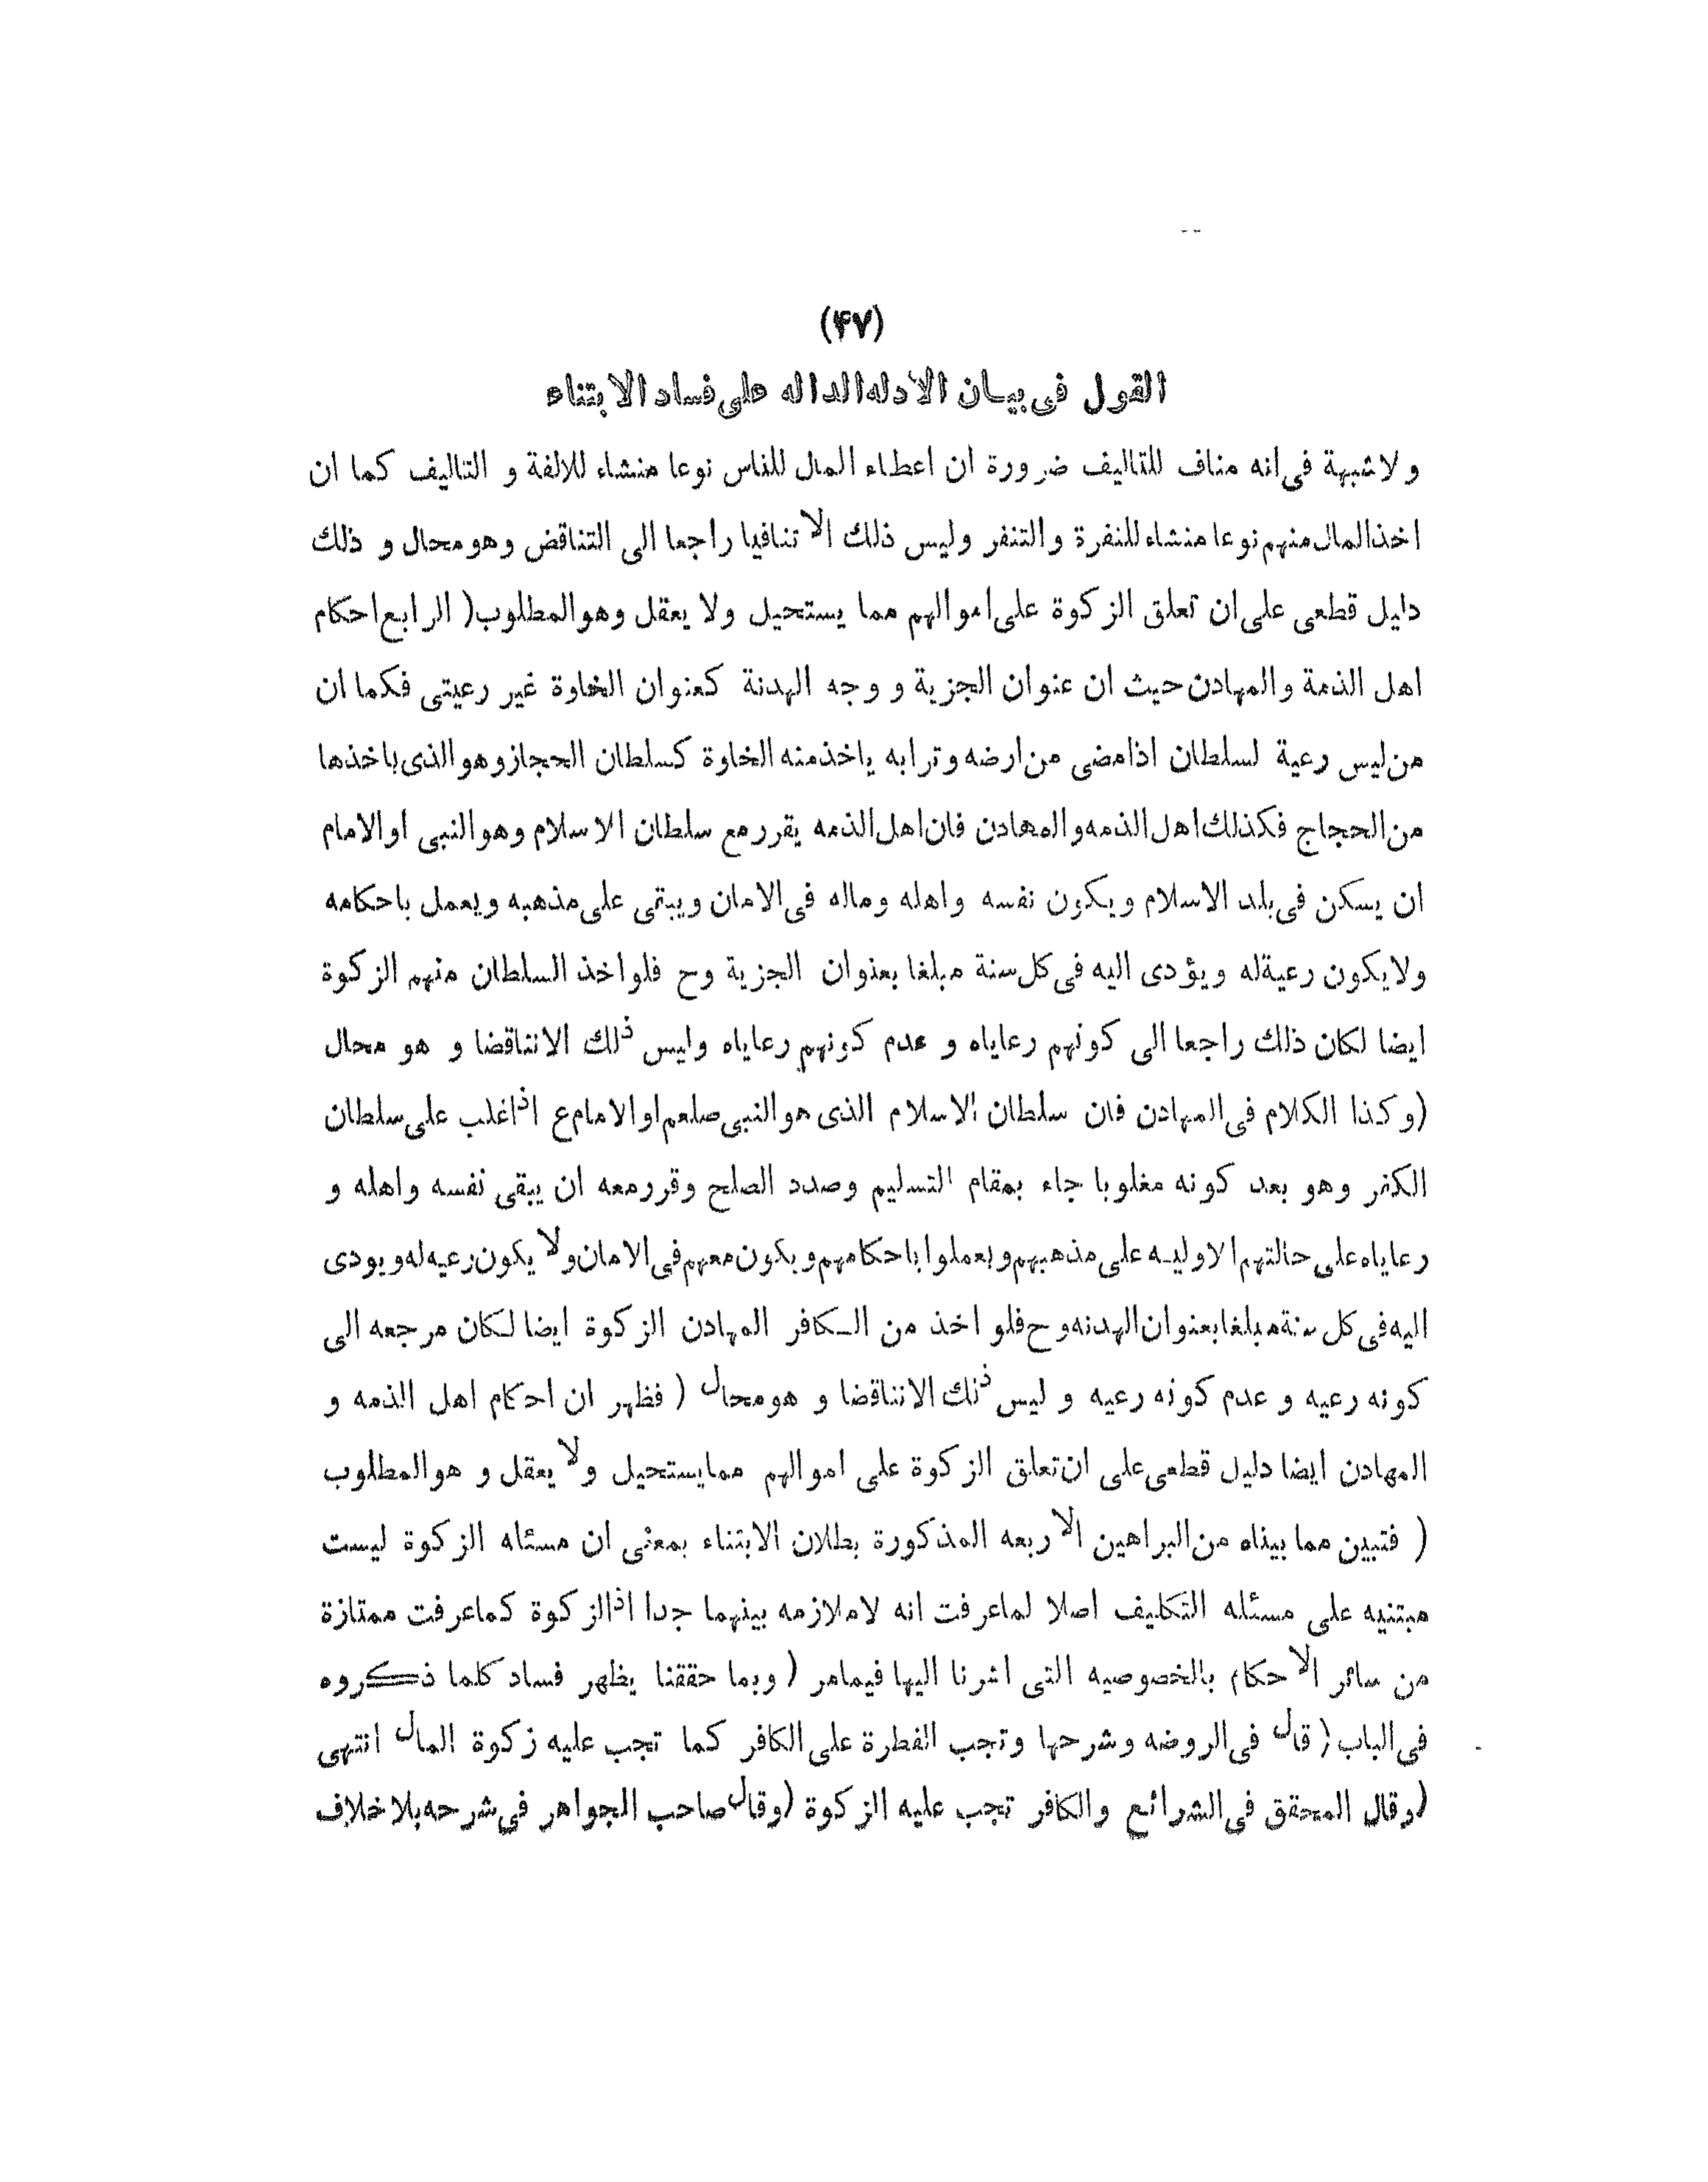 (۴۷)
القول فى بيان الادله الداله على فساد الابتناء
ولاشبهة فى انه مناف للتاليف ضرورة ان اعطاء المال للناس نوعا منشاء للالفة و التاليف كما ان
اخذالمال منهم نوعا منشاء للنفرة والتنفر وليس ذلك الا تنافيا راجعا الى التناقض وهومحال و ذلك
دليل قطعى على ان تعلق الزكوة على اموالهم مما يستحيل ولا يعقل وهوالمطلوب( الرابع احكام
اهل الذمة والمهادن حيث ان عنوان الجزية و وجه الهدنة كعنوان الخاوة غير رعيتى فكما ان
من ليس رعية لسلطان اذامضى من ارضه وترابه ياخذمنه الخاوة كسلطان الحجازوهوالذى ياخذها
من الحجاج فكذلك اهل الذمه والمهادن فان اهل الذمه يقررمع سلطان الاسلام وهوالنبى اوالامام
ان يسكن فى بلد الاسلام ويكون نفسه واهله وماله فى الامان ويبقى على مذهبه ويعمل باحكامه
ولايكون رعيةله ويؤدى اليه فى كل سنة مبلغا بعنوان الجزية وح فلواخذ السلطان منهم الزكوة
ايضا لكان ذلك راجعا الى كونهم رعاياه و عدم كونهم رعاياه وليس ذلك الاتناقضا و هو محال
(وكذا الكلام فى المهادن فان سلطان الاسلام الذى هوالنبى صلعم اوالامام ع اذاغلب على سلطان
الكفر وهو بعد كونه مغلوبا جاء بمقام التسليم وصدد الصلح وقررمعه ان يبقى نفسه واهله و
رعاياه على حالتهم الاوليه على مذهبهم وبعملوا باحكامهم ويكون معهم فى الامان ولا يكون رعيه له ويودى
اليه فى كل سنة مبلغا بعنوان الهدنه وح فلو اخذ من الكافر المهادن الزكوة ايضا لكان مرجعه الى
كونه رعيه و عدم كونه رعيه و ليس ذلك الاتناقضا و هومحال ( فظهر ان احكام اهل الذمه و
المهادن ايضا دليل قطعى على ان تعلق الزكوة على اموالهم ممايستحيل ولا يعقل و هوالمطلوب
( فتبين مما بيناه من البراهين الاربعه المذكورة بطلان الابتناء بمعنى ان مسئله الزكوة ليست
مبتنيه على مسئله التكليف اصلا لماعرفت انه لاملازمه بينهما جدا اذالزكوة كماعرفت ممتازة
من سائر الاحكام بالخصوصيه التى اشرنا اليها فيمامر ( وبما حققنا يظهر فساد كلما ذكروه
فى الباب( قال فى الروضه وشرحها وتجب الفطرة على الكافر كما تجب عليه زكوة المال انتهى
(وقال المحقق فى الشرائع والكافر تجب عليه الزكوة (وقال صاحب الجواهر فى شرحه بلاخلاف